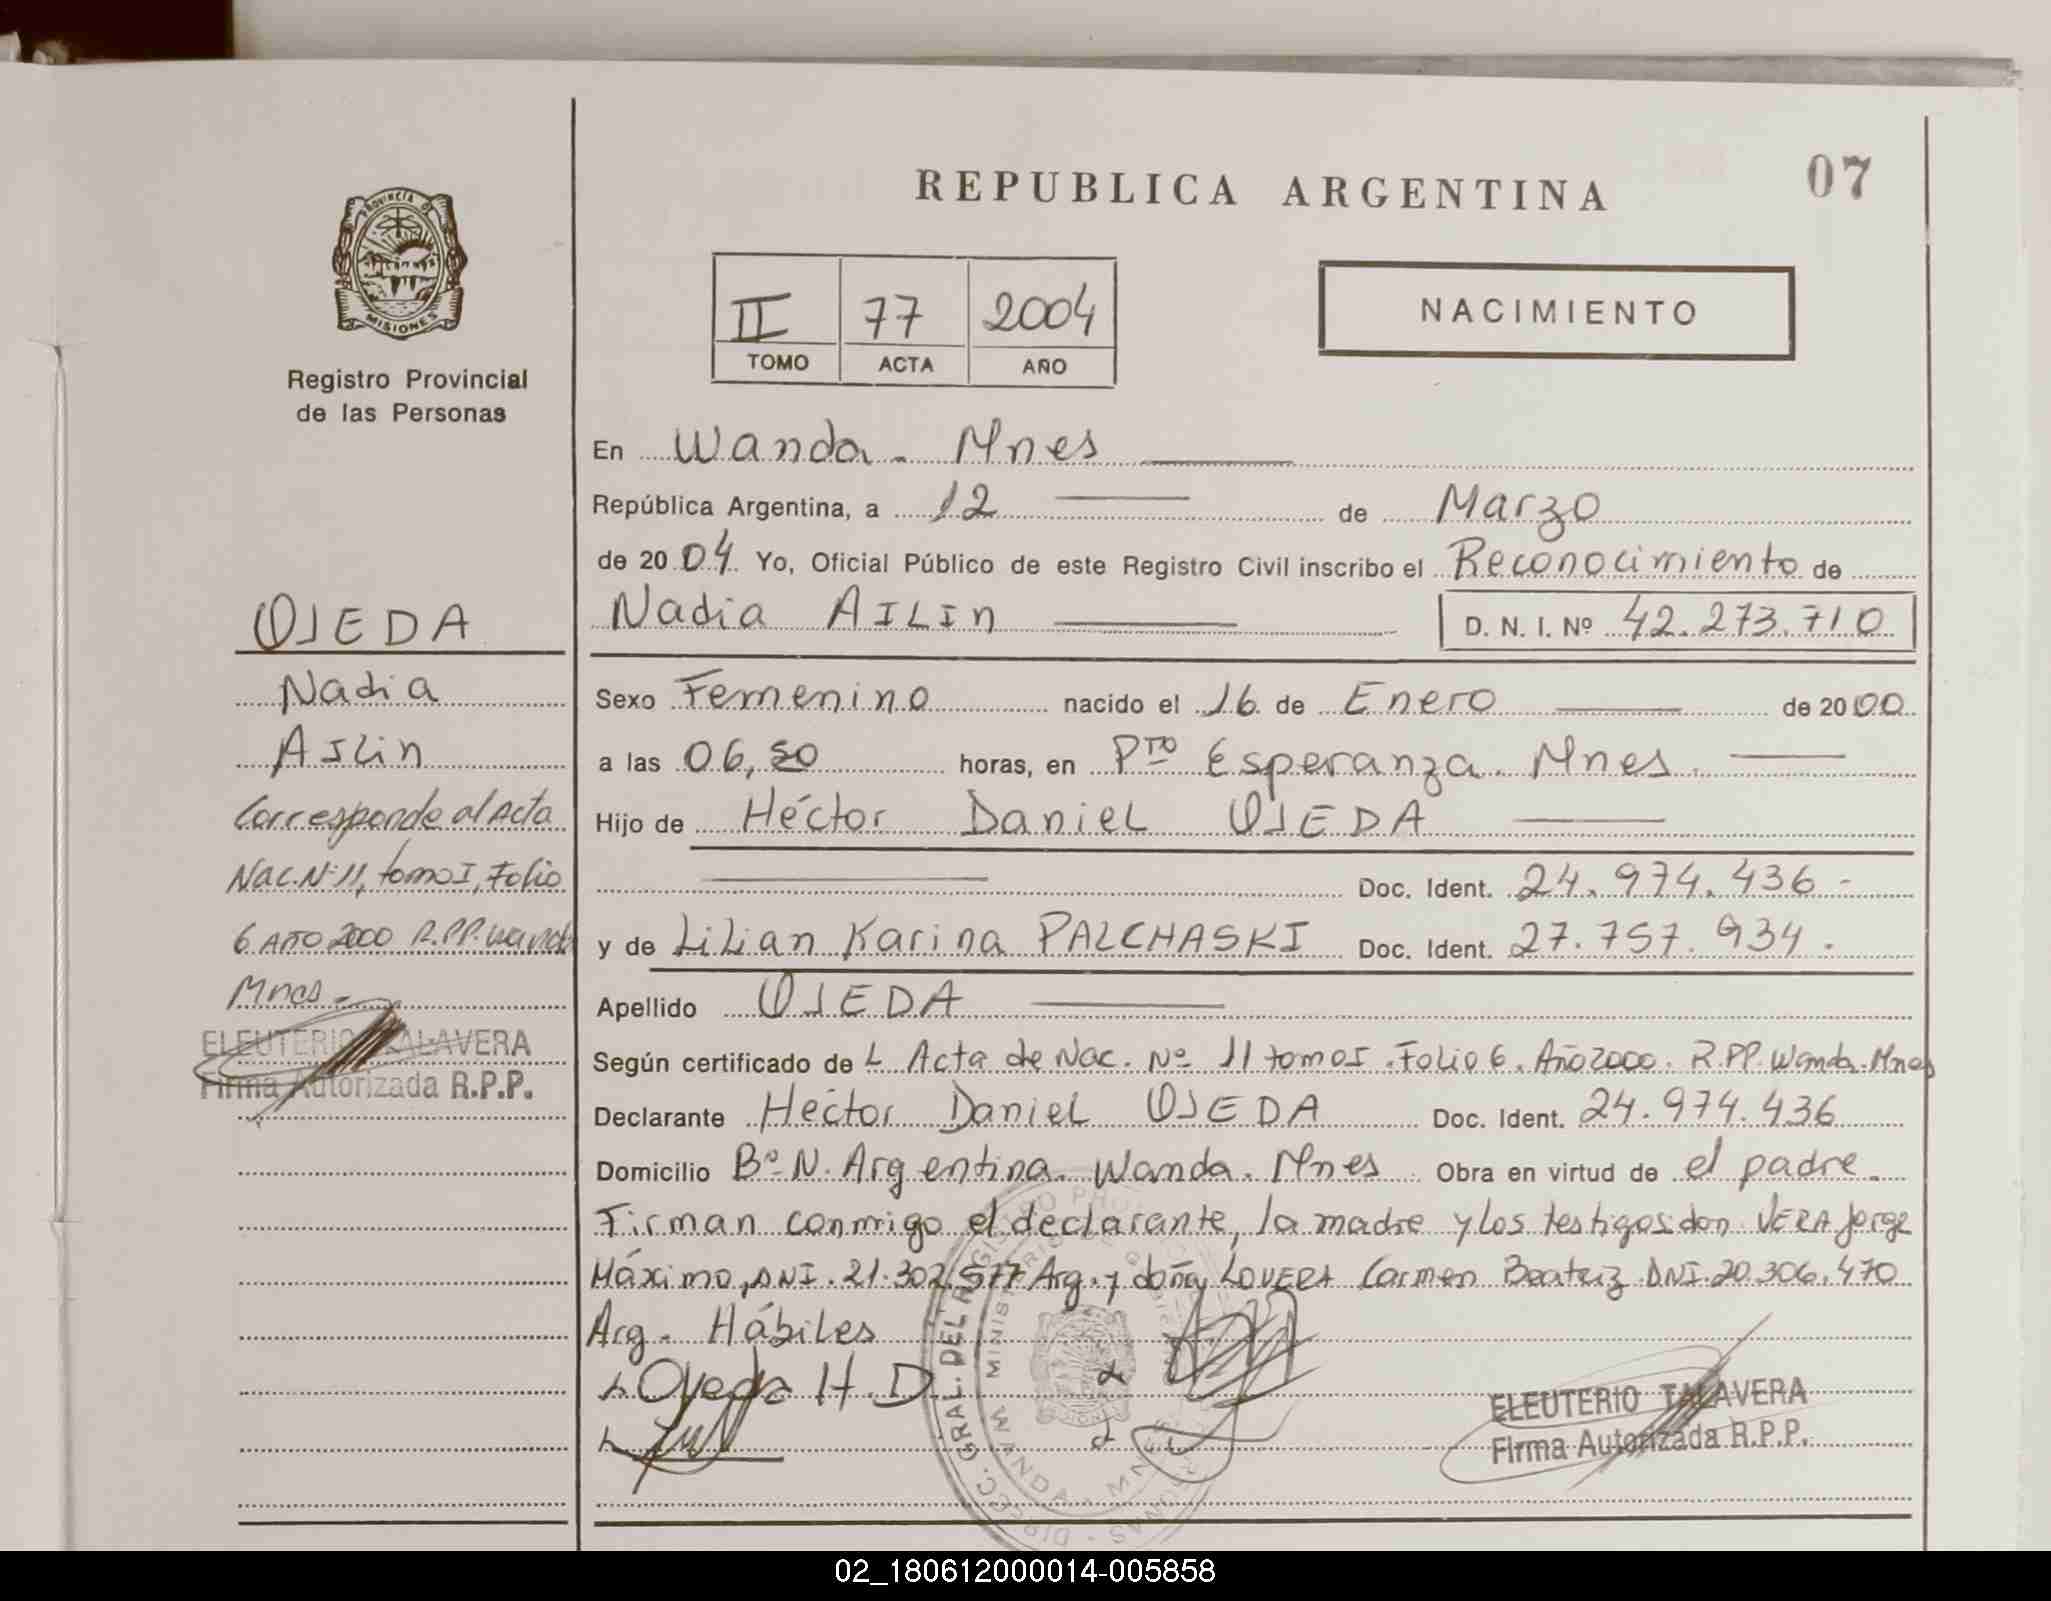 REPUBLICA ARGENTINA
07
PROVINCIA DE
MISIONES
Registro Provincial
de las Personas
II 77 2004
TOMO ACTA AÑO
NACIMIENTO
OJEDA
Nadia
AILin
Corresponde al Acta
Nac. Nº 11, tomo I, Folio
6 AÑO 2000 R.P.P. Wanda
Mnes.-
ELEUTERIO TALAVERA
Firma Autorizada R.P.P.
En Wanda - Mnes
República Argentina, a 12 de Marzo
de 2004 Yo, Oficial Público de este Registro Civil inscribo el Reconocimiento de
Nadia AILIn D. N. I. Nº 42.273.710
Sexo Femenino nacido el 16 de Enero de 2000
a las 06, horas, en Pto Esperanza. Mnes.
Hijo de Héctor Daniel OJEDA
Doc. Ident. 24.974.436 -
y de Lilian Karina PALCHASKI Doc. Ident. 27.757.934.
Apellido OJEDA
Según certificado de L Acta de Nac. Nº 11 tomo I. Folio 6. Año 2000. R.PP. Wanda. Mnes
Declarante Héctor Daniel OJEDA Doc. Ident. 24.974.436
Domicilio Bº N. Argentina. Wanda. Mnes Obra en virtud de el padre.
Firman conmigo el declarante, la madre y los testigos don VERA Jorge
Máximo, DNI. 21.302.577 Arg. y doña LOVERA Carmen Beatriz DNI. 20.306.470
Arg. Hábiles
Ojeda H. D
ELEUTERIO TALAVERA
Firma Autorizada R.P.P.
DIRECC. GRAL. DEL REGISTRO
WANDA - MNES
02_180612000014-005858